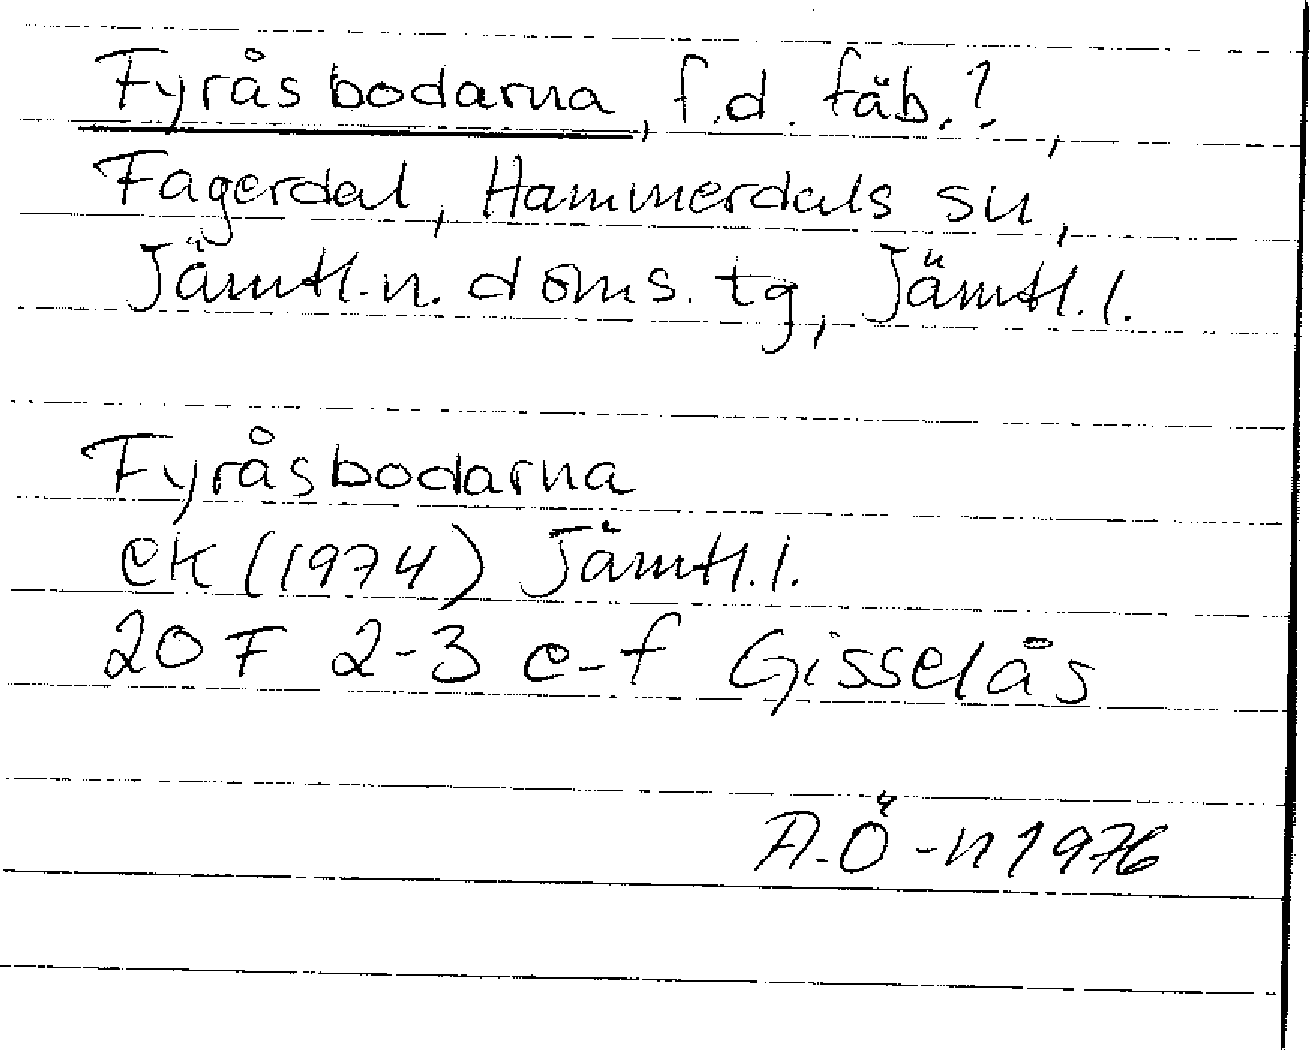 Fyråsbodarna, f.d. fäb.?,
Fagerdal, Hammerdals sn,
Jämtl.n. doms. tg, Jämtl.l.
Fyråsbodarna
ek (1974) Jämtl.l.
20 F 2-3 e-f Gisselås
A-Ö-n 1976